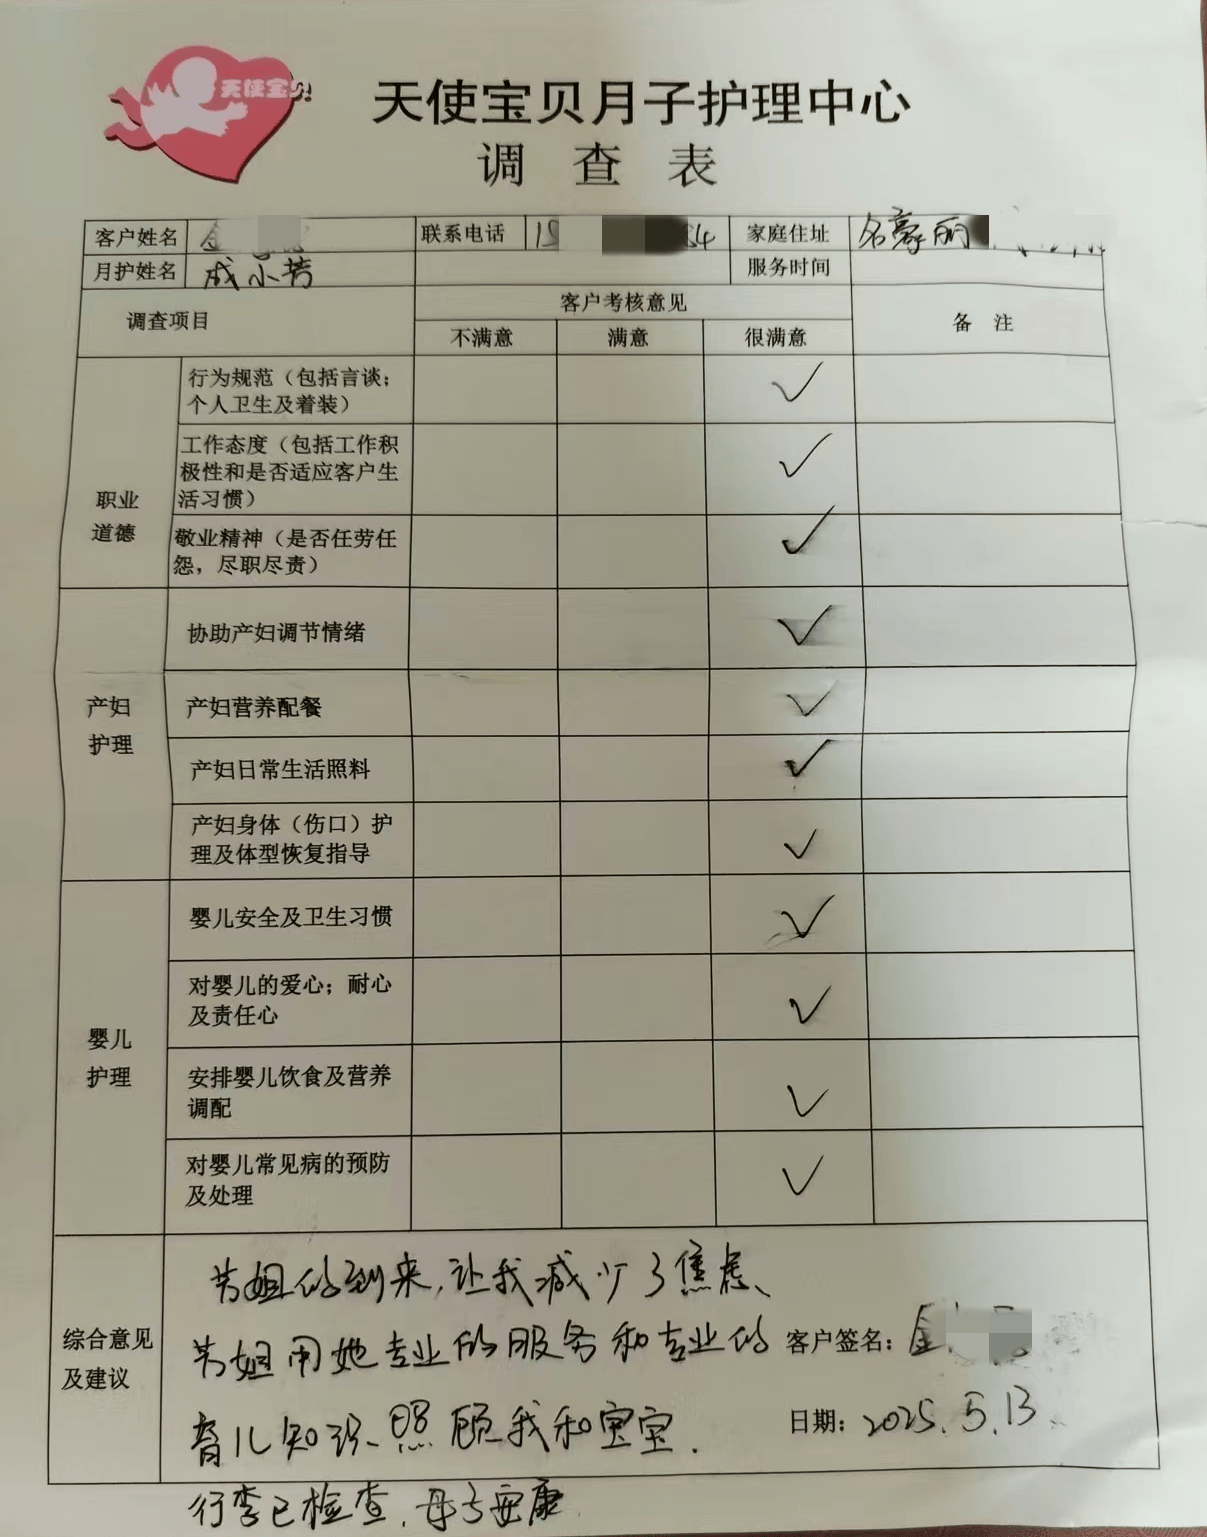 天使宝贝
天使宝贝月子护理中心
调 查 表
客户姓名 金 联系电话 15 34 家庭住址 名豪丽
月护姓名 成小芳 服务时间
调查项目 客户考核意见 备 注
不满意 满意 很满意
职业
道德
行为规范（包括言谈；
个人卫生及着装）
工作态度（包括工作积
极性和是否适应客户生
活习惯）
敬业精神（是否任劳任
怨，尽职尽责）
产妇
护理
协助产妇调节情绪
产妇营养配餐
产妇日常生活照料
产妇身体（伤口）护
理及体型恢复指导
婴儿
护理
婴儿安全及卫生习惯
对婴儿的爱心；耐心
及责任心
安排婴儿饮食及营养
调配
对婴儿常见病的预防
及处理
综合意见
及建议
芳姐的到来,让我减少了焦虑、
芳姐用她专业的服务和专业的
育儿知识、照顾我和宝宝.
行李已检查.母子安康
客户签名：金
日期：2025.5.13